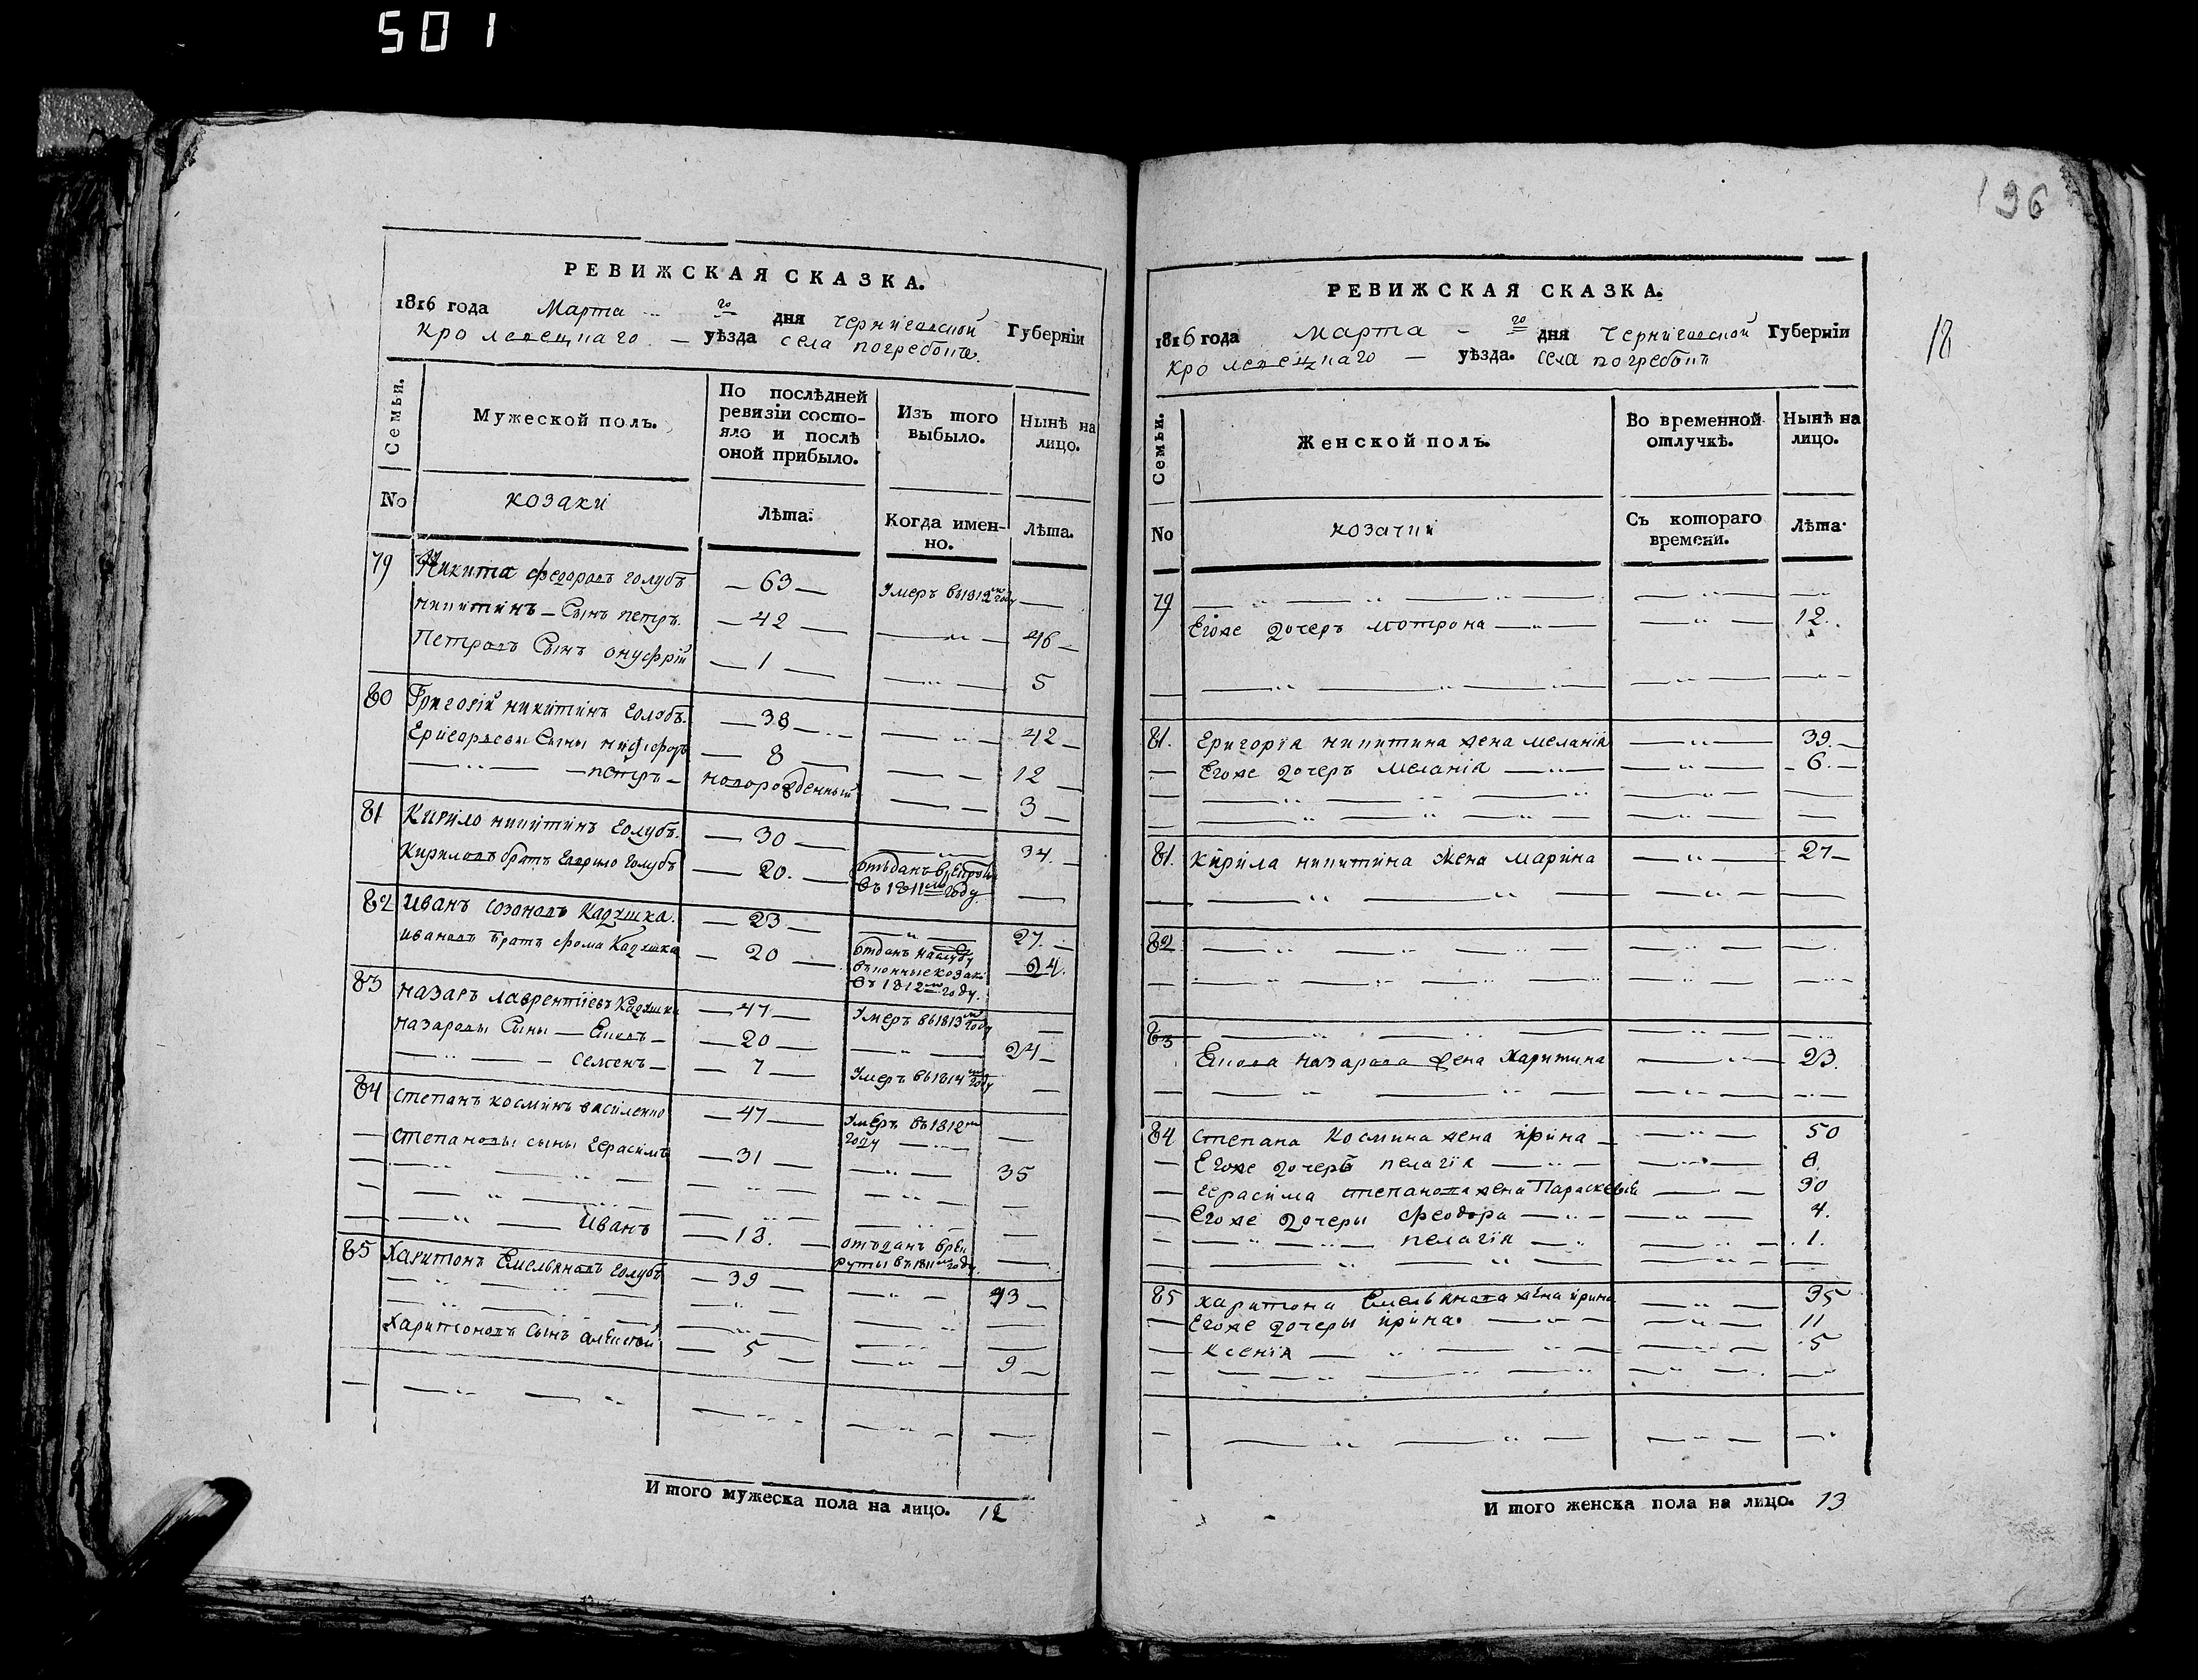 501
196
18
РЕВИЖСКАЯ СКАЗКА.
1816 года Марта го дня Черниговской Губерніи
Кролевецкаго уѣзда села Погребокъ
Семьи.
Мужеской полъ.
По послѣдней ревизіи состояло и послѣ оной прибыло.
Изъ того выбыло.
Нынѣ на лицо.
No
козаки
Лѣта.
Когда именно.
Лѣта.
79 Никита Федоровъ Голубъ — 63 — Умеръ въ 1812м году —
Никитинъ — Сынъ Петръ. — 42 — — 46 —
Петровъ Сынъ Онуфрій — 1 — — 5
80 Григорій Никитинъ Голубъ. — 38 — — 42 —
Григорьевы Сыны Никифоръ — 8 — — 12
— петръ — новорожденный — 3 —
81 Кирило Никитинъ Голубъ. — 30 — — 34. —
Кириловъ братъ Гаврило Голубъ — 20. — въ 1811м году —
82 Иванъ Созоновъ Кадушка. — 23 — — 27. —
Ивановъ Братъ Фома Кадушка — 20 — отданъ на службу в конные козаки въ 1812м году. 24.
83 Назаръ Лаврентіевъ Кадушка — 47 — Умеръ въ 1813м году —
Назаровы Сыны — Яковъ — — 20 — — 24 —
— Семенъ — — 7 — Умеръ въ 1814м году —
84 Степанъ Косминъ Василенко — 47 — Умеръ въ 1812м году —
Степановы сыны Герасимъ — 31 — — 35
— Иванъ — 18. — отъданъ в рекруты въ 1811м году —
85 Харитонъ Емельяновъ Голубъ — 39 — — 43 —
Харитоновъ Сынъ Алексѣй — 5 — — 9 —
И того мужеска пола на лицо. 12
РЕВИЖСКАЯ СКАЗКА.
1816 года Марта — го дня Черниговской Губерніи
Кролевецкаго — уѣзда. села Погребокъ
Семьи.
Женской полъ.
Во временной отлучкѣ.
Нынѣ на лицо.
No
козачки
Съ котораго времени.
Лѣта.
79
Егоже дочеръ Мотрона — — 12.
81. Григорія Никитина жена Меланія — 39. —
Егоже дочеръ Меланія — — 6. —
81. Кирила Никитина жена Марина — 27 —
82
83
Якова Назарова жена Харитина — 23.
84 Степана Космина жена Ирина — — 50
Егоже дочеръ Пелагія — — 8.
Герасима Степанова жена Параскевія — 30
Егоже дочеры Феодора — — 4.
— Пелагія — — 1.
85 Харитона Емельянова жена Ирина — 35
Егоже дочеры Ирина. — — 11
Ксенія — — 5
И того женска пола на лицо. 13